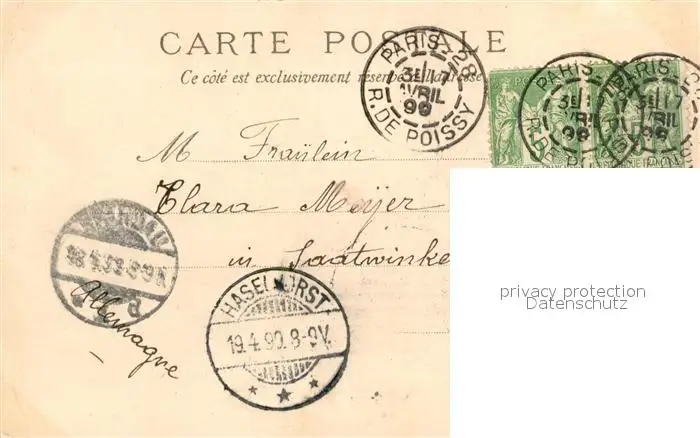 CARTE POSTALE
Ce côté est exclusivement réservé à l'adresse
PARIS 28
3E 17
AVRIL
99
R. DE POISSY
PARIS
3E
AVRIL
99
PARIS
3E 17
AVRIL
99
M Fräulein
Clara Meijer
in Saatwinke
Allemagne
HASELHORST
19.4.90.8-9V.
privacy protection
Datenschutz